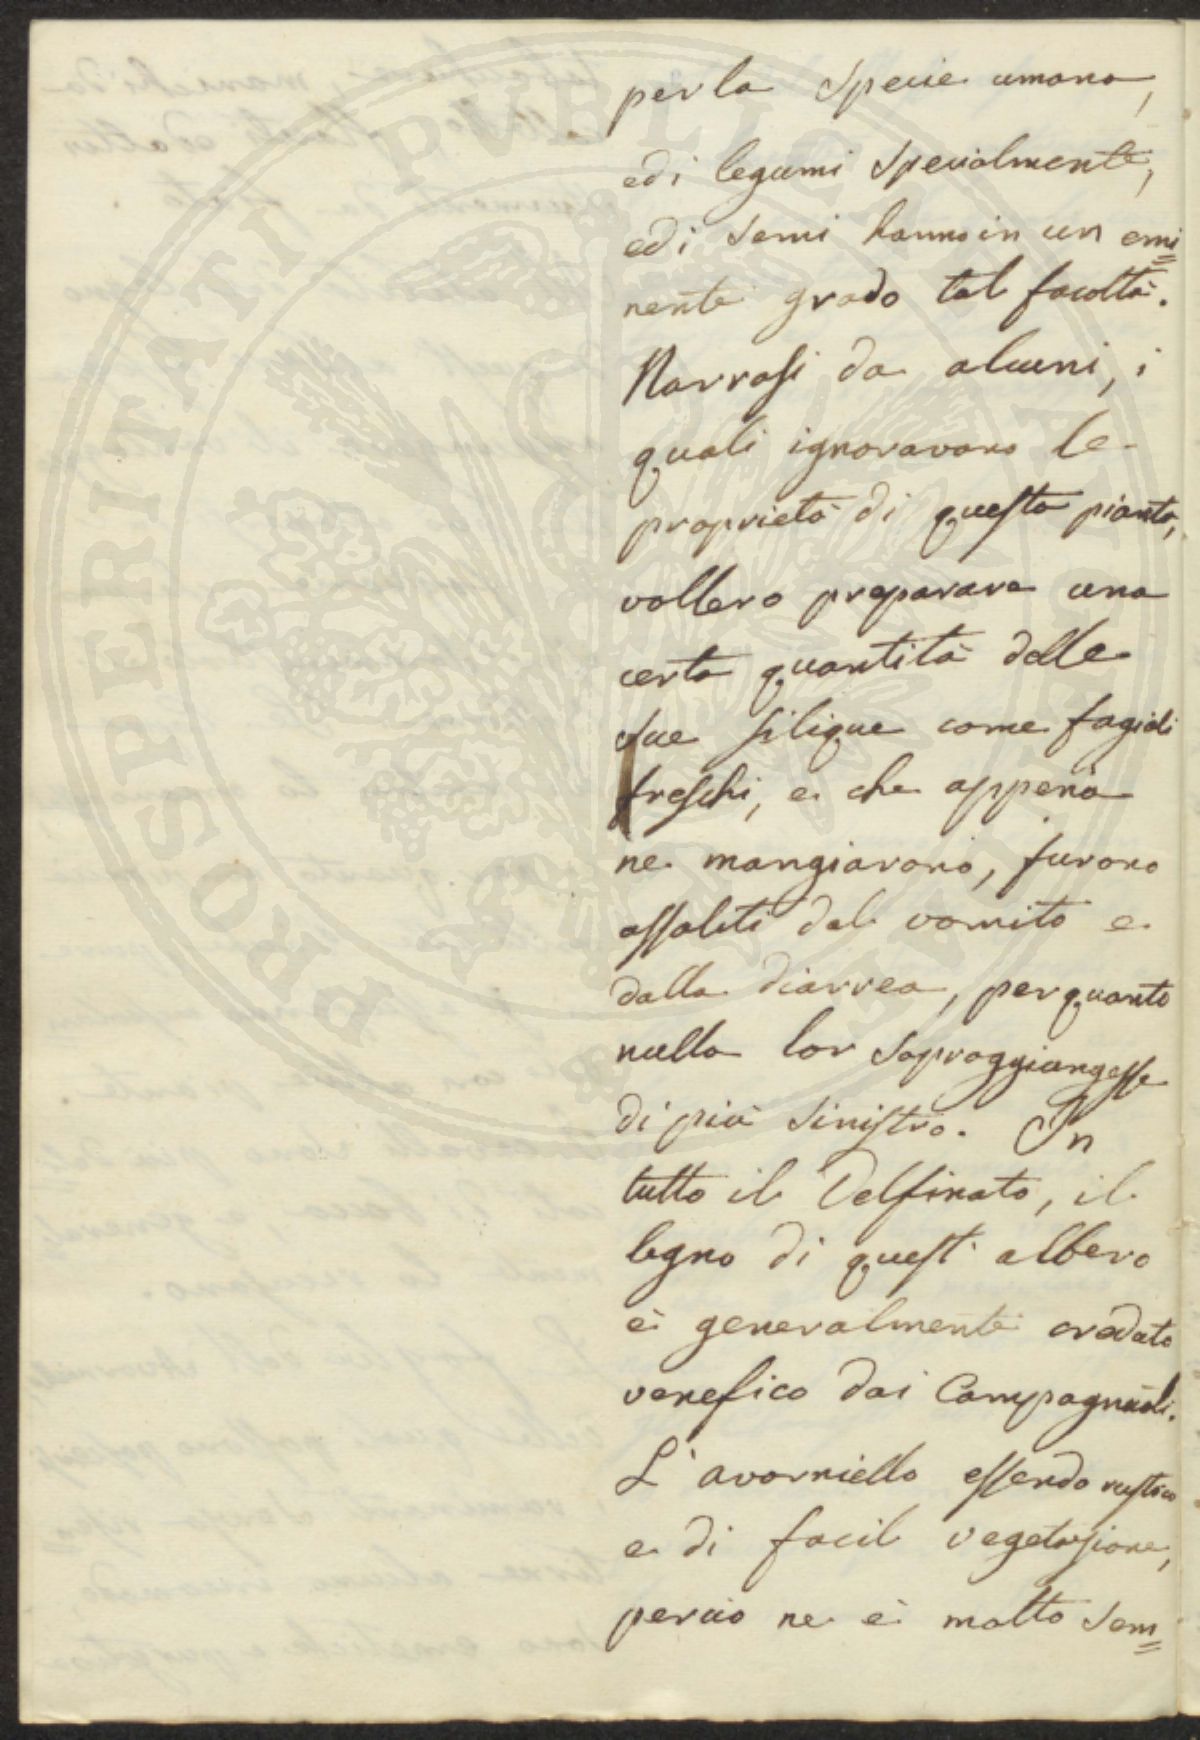 per la Specie umana,
ed i legumi Specialmente,
ed i Semi hanno in un emi=
nente grado tal facoltà.
Narrasi da alcuni, i
quali ignoravano le
proprietà di questa pianta,
vollero preparare una
certa quantità delle
sue silique come fagioli
freschi, e che appena
ne mangiarono, furono
assaliti dal vomito e
dalla diarrea, per quanto
nulla lor Sopraggiungesse
di più Sinistro. In
tutto il Delfinato, il
legno di quest' albero
è generalmente creduto
venefico dai Campagnuoli.
L' avorniello essendo rustico
e di facil vegetazione,
perciò ne è molto Sem=
PROSPERITATI PUBLICAE